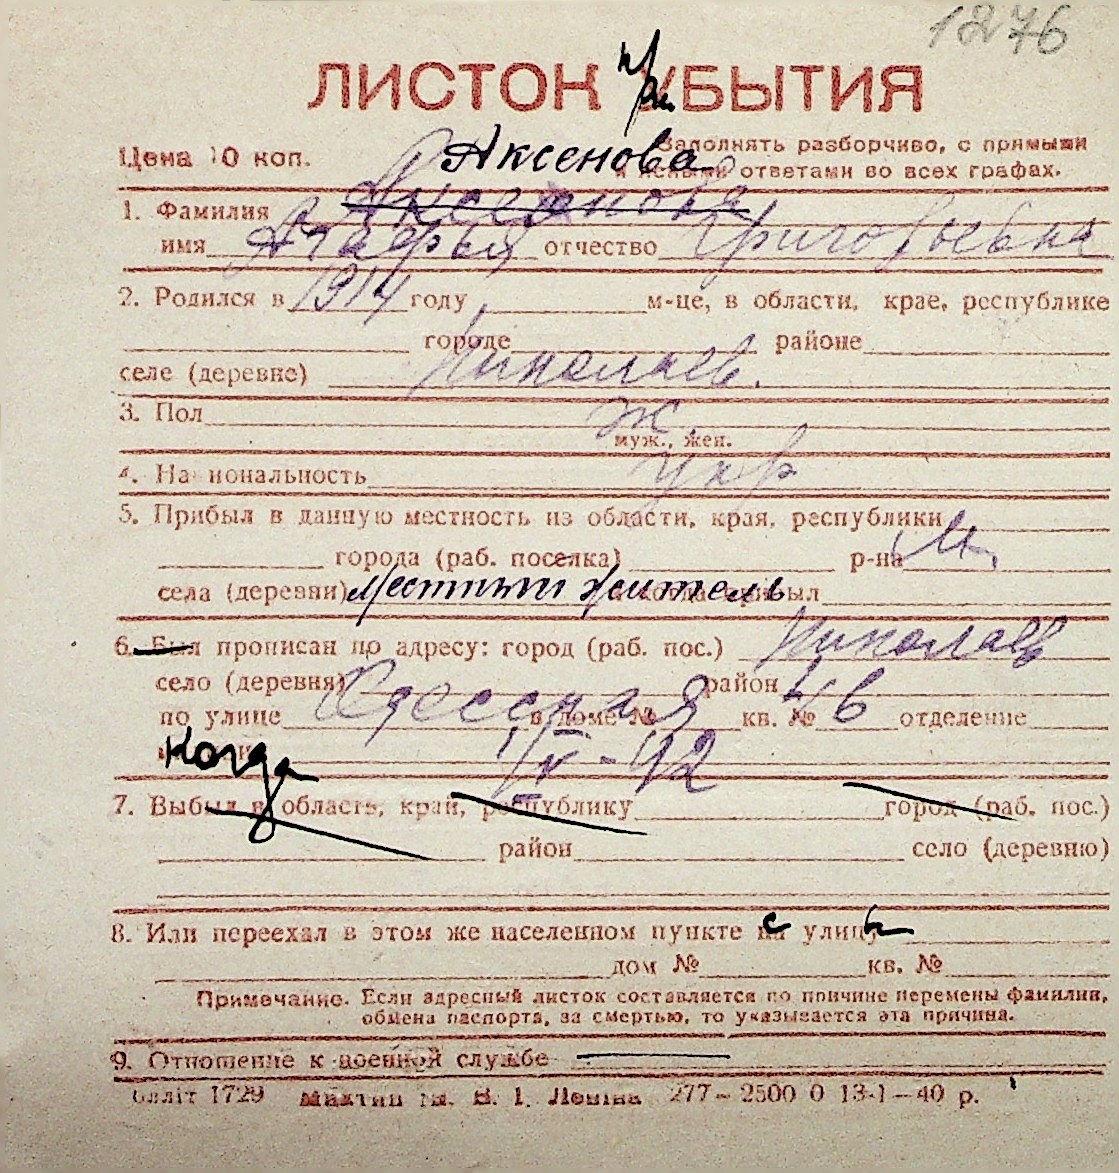 1276
ЛИСТОК при УБЫТИЯ
Цена 10 коп. Аксенова Заполнять разборчиво, с прямыми
и ясными ответами во всех графах.
1. Фамилия Аксенова
имя отчество Григорьевна
2. Родился в 1914 году м-це, в области, крае, республике
городе районе
селе (деревне) Николаев.
3. Пол ж
муж., жен.
4. Национальность укр
5. Прибыл в данную местность из области, края, республики
города (раб. поселка) р-на М.
села (деревни) местный житель когда прибыл
6. Был прописан по адресу: город (раб. пос.) Николаев
село (деревня) район
по улице Одесская в доме № кв. № 46 отделение
Когда 1/IV-42
7. Выбыл в область, край, республику город (раб. пос.)
район село (деревню)
8. Или переехал в этом же населенном пункте с улицы
дом № кв. №
Примечание. Если адресный листок составляется по причине перемены фамилии,
обмена паспорта, за смертью, то указывается эта причина.
9. Отношение к военной службе —
1729 ім. В. І. Леніна 277–2500 0 13-1–40 р.